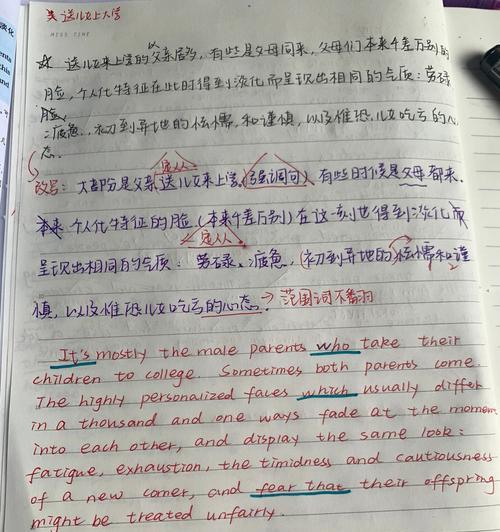 送儿女上大学
MISS TIME
☆ 送儿女来上学的以父亲居多，有些是父母同来，父母们本来千差万别的
脸，个人化特征在此时得到淡化而呈现出相同的气质：劳碌
疲惫、初到异地的怯懦，和谨慎，以及惟恐儿女吃亏的心
态。
定从
改写：大部份是父亲送儿女来上学（强调句）有些时候是父母都来.
本来个人化特征的脸（本来千差万别）在这一刻也得到淡化而
定从
呈现出相同的气质：劳碌、疲惫，初到异地的怯懦和谨
慎，以及惟恐儿女吃亏的心态。→范围词不翻
It's mostly the male parents who take their
children to college. Sometimes both parents come.
The highly personalized faces which usually differ
in a thousand and one ways fade at the momen
into each other, and display the same look:
fatigue, exhaustion, the timidness and cautiousness
of a new comer, and fear that their offspring
might be treated unfairly.